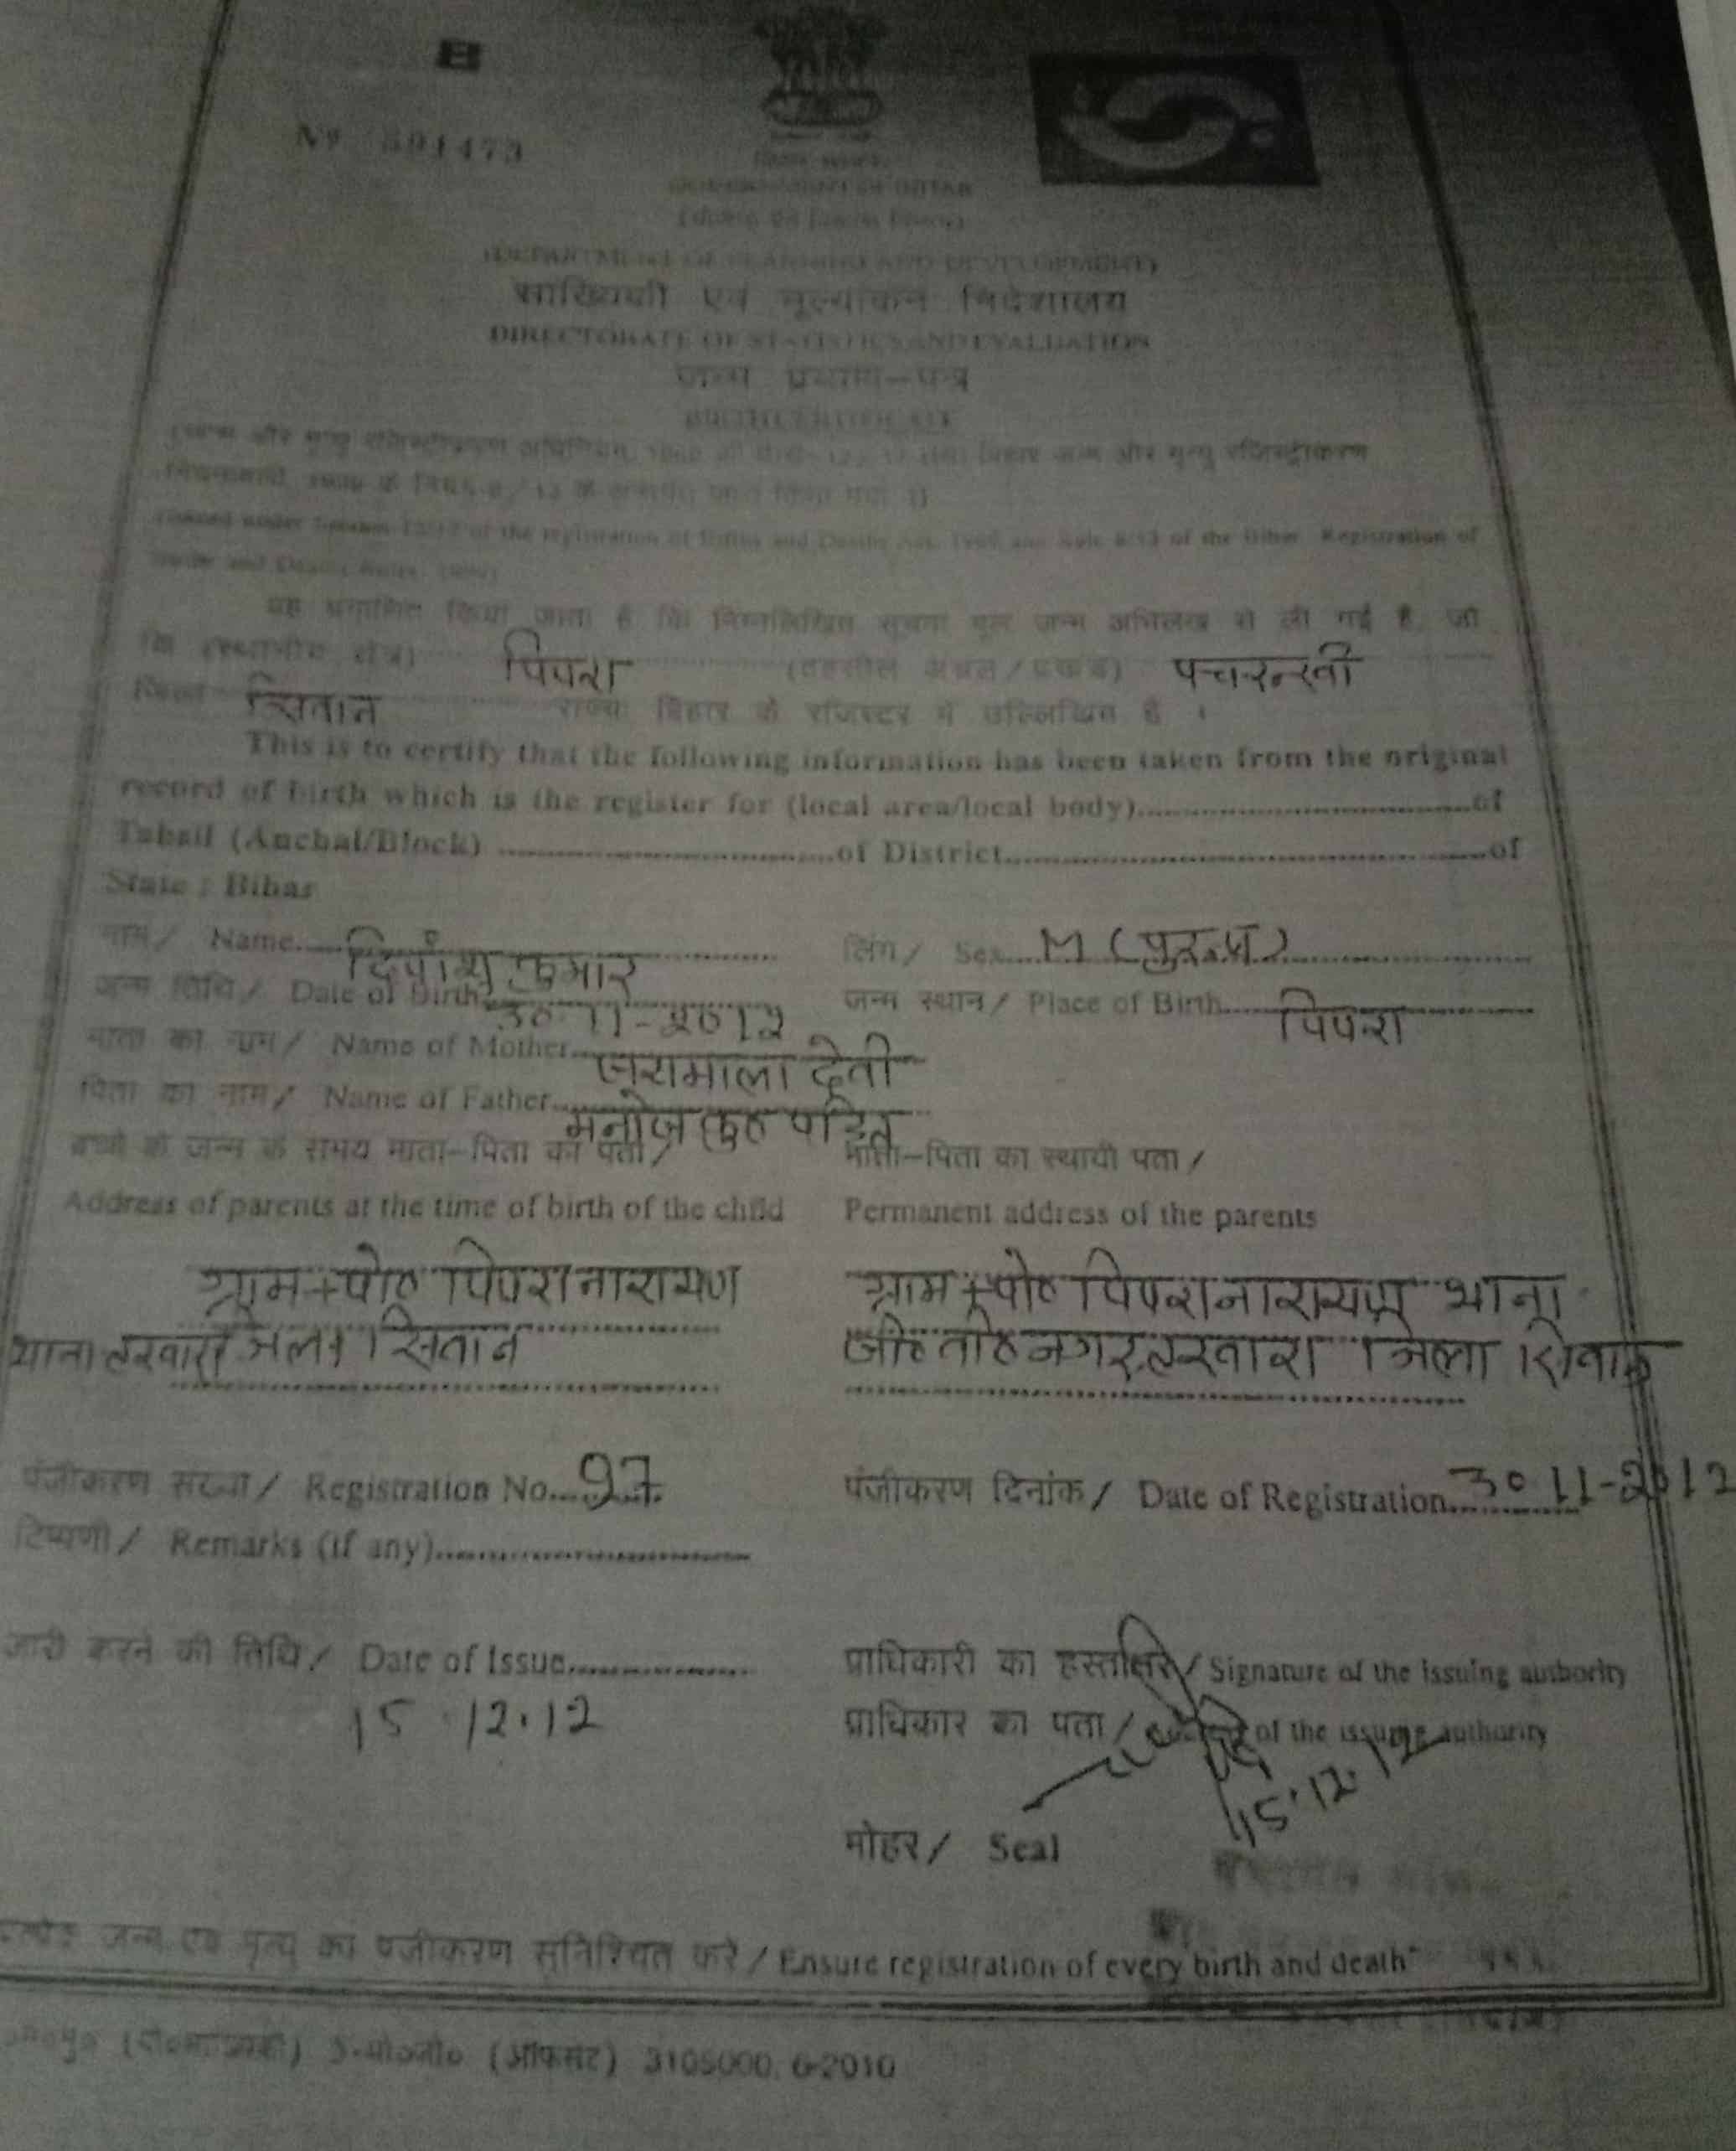 B
No 591473
GOVERNMENT OF BIHAR
(DEPARTMENT OF PLANNING AND DEVELOPMENT)
सांख्यिकी एवं मूल्यांकन निदेशालय
DIRECTORATE OF STATISTICS AND EVALUATION
जन्म प्रमाण-पत्र
BIRTH CERTIFICATE
(जन्म और मृत्यु रजिस्ट्रीकरण अधिनियम, 1969 की धारा-12/17 तथा बिहार जन्म और मृत्यु रजिस्ट्रीकरण
(Issued under Section 12/17 of the registration of Births and Deaths Act, 1969 and Rule 8/13 of the Bihar Registration of
यह प्रमाणित किया जाता है कि निम्नलिखित सूचना मूल जन्म अभिलेख से ली गई है, जो
कि (स्थानीय क्षेत्र) पिपरा (तहसील अंचल/प्रखंड)
जिला सिवान राज्य बिहार के रजिस्टर में उल्लिखित है ।
This is to certify that the following information has been taken from the original
record of birth which is the register for (local area/local body)..............................of
Tahsil (Anchal/Block) ..............................of District..............................of
State : Bihar
नाम/ Name..... कुमार लिंग/ Sex.... M (पुरुष)
जन्म तिथि/ Date of Birth 30-11-2012 जन्म स्थान/ Place of Birth..... पिपरा
माता का नाम/ Name of Mother... जयमाला देवी
पिता का नाम/ Name of Father... मनोज कु० पंडित
बच्चे के जन्म के समय माता-पिता का पता/ माता-पिता का स्थायी पता/
Address of parents at the time of birth of the child Permanent address of the parents
ग्राम+पो० पिपरा नारायण ग्राम+पो० पिपरा नारायण थाना
थाना जिला सिवान जी० नगर तरवारा जिला सिवान
पंजीकरण संख्या/ Registration No.... 97 पंजीकरण दिनांक/ Date of Registration 30 11-2012
टिप्पणी/ Remarks (if any)..............................
जारी करने की तिथि/ Date of Issue.................. प्राधिकारी का हस्ताक्षर/ Signature of the issuing authority
15.12.12 प्राधिकार का पता/ of the issuing authority
15.12.12
मोहर/ Seal
जन्म एवं मृत्यु का पंजीकरण सुनिश्चित करें/ Ensure registration of every birth and death"
(ऑफसेट) 3105000, 6-2010